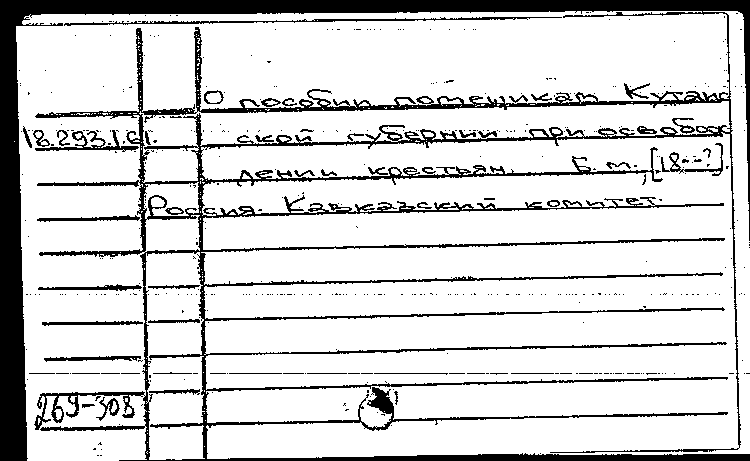 О пособии помещикам Кутаис
18.293.1.61. ской губернии при освобож
дении крестьян. Б.м., [18--?].
Россия. Кавказский комитет.
269-308